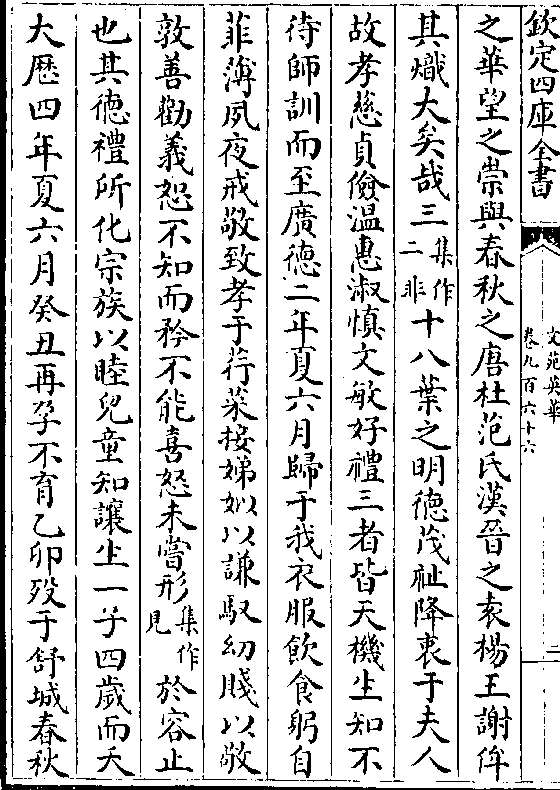 欽定四庫全書
文苑英華
卷九百六十六
二
之華望之崇與春秋之唐杜范氏漢晉之袁楊王謝侔
其熾大矣哉三集作二非十八葉之明德茂祉降衷于夫人
故孝慈貞儉温惠淑慎文敏好禮三者皆天機生知不
待師訓而至廣德二年夏六月歸于我衣服飲食躬自
菲薄夙夜戒敬致孝于荇菜接娣姒以謙馭幼賤以敬
敦善勸義恕不知而矜不能喜怒未嘗形集作見於容止
也其德禮所化宗族以睦兒童知讓生一子四歲而夭
大歷四年夏六月癸丑再孕不育乙卯歿于舒城春秋